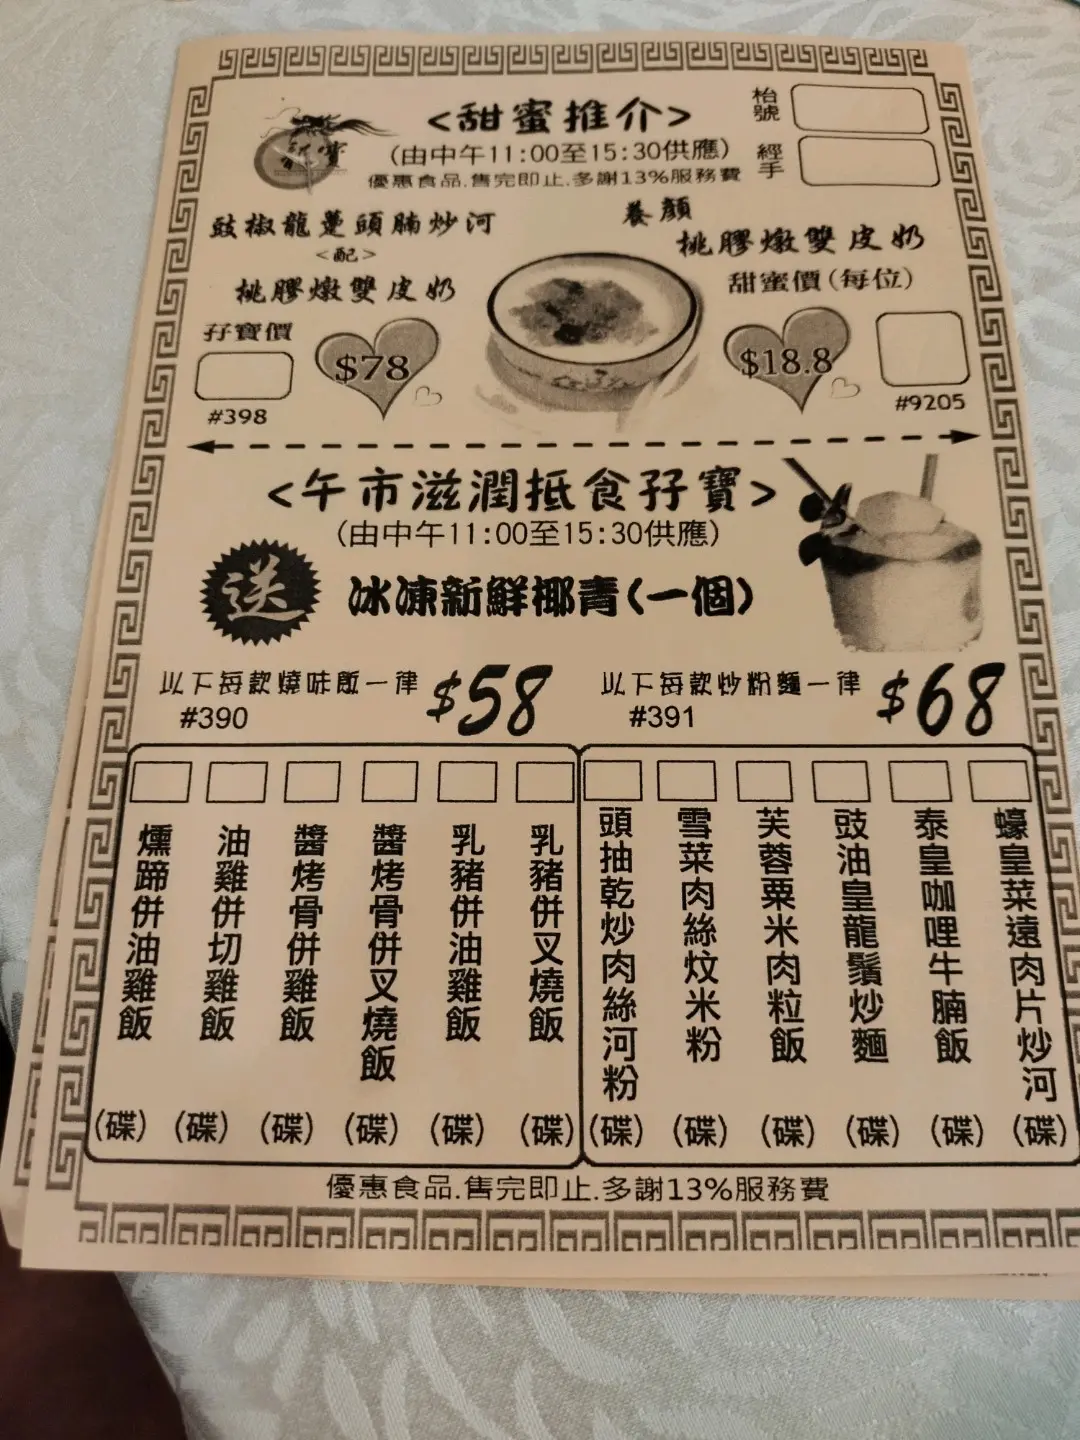 <甜蜜推介>
(由中午11:00至15:30供應)
優惠食品.售完即止.多謝13%服務費
枱號
經手
豉椒龍躉頭腩炒河
<配>
桃膠燉雙皮奶
孖寶價
$78
#398
養顏
桃膠燉雙皮奶
甜蜜價(每位)
$18.8
#9205
<午市滋潤抵食孖寶>
(由中午11:00至15:30供應)
送
冰凍新鮮椰青(一個)
以下每款燒味飯一律 $58
#390
以下每款炒粉麵一律 $68
#391
燻蹄併油雞飯(碟)
油雞併切雞飯(碟)
醬烤骨併雞飯(碟)
醬烤骨併叉燒飯(碟)
乳豬併油雞飯(碟)
乳豬併叉燒飯(碟)
頭抽乾炒肉絲河粉(碟)
雪菜肉絲炆米粉(碟)
芙蓉粟米肉粒飯(碟)
豉油皇龍鬚炒麵(碟)
泰皇咖哩牛腩飯(碟)
蠔皇菜遠肉片炒河(碟)
優惠食品.售完即止.多謝13%服務費